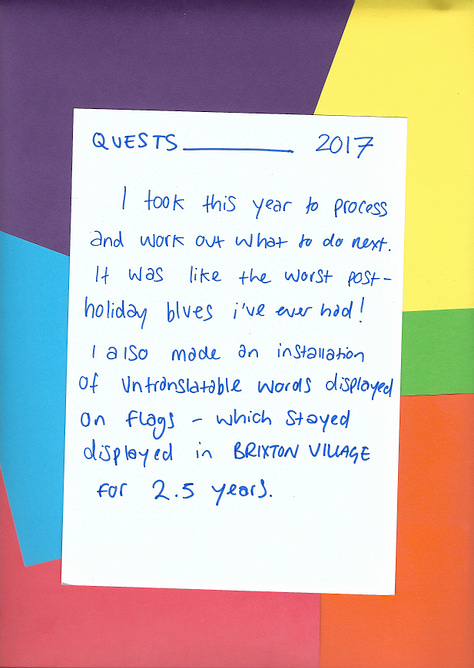 QUESTS________ 2017
I took this year to process
and work out what to do next.
It was like the worst post-
holiday blues i've ever had!
I also made an installation
of untranslatable words displayed
on flags - which stayed
displayed in BRIXTON VILLAGE
for 2.5 years.